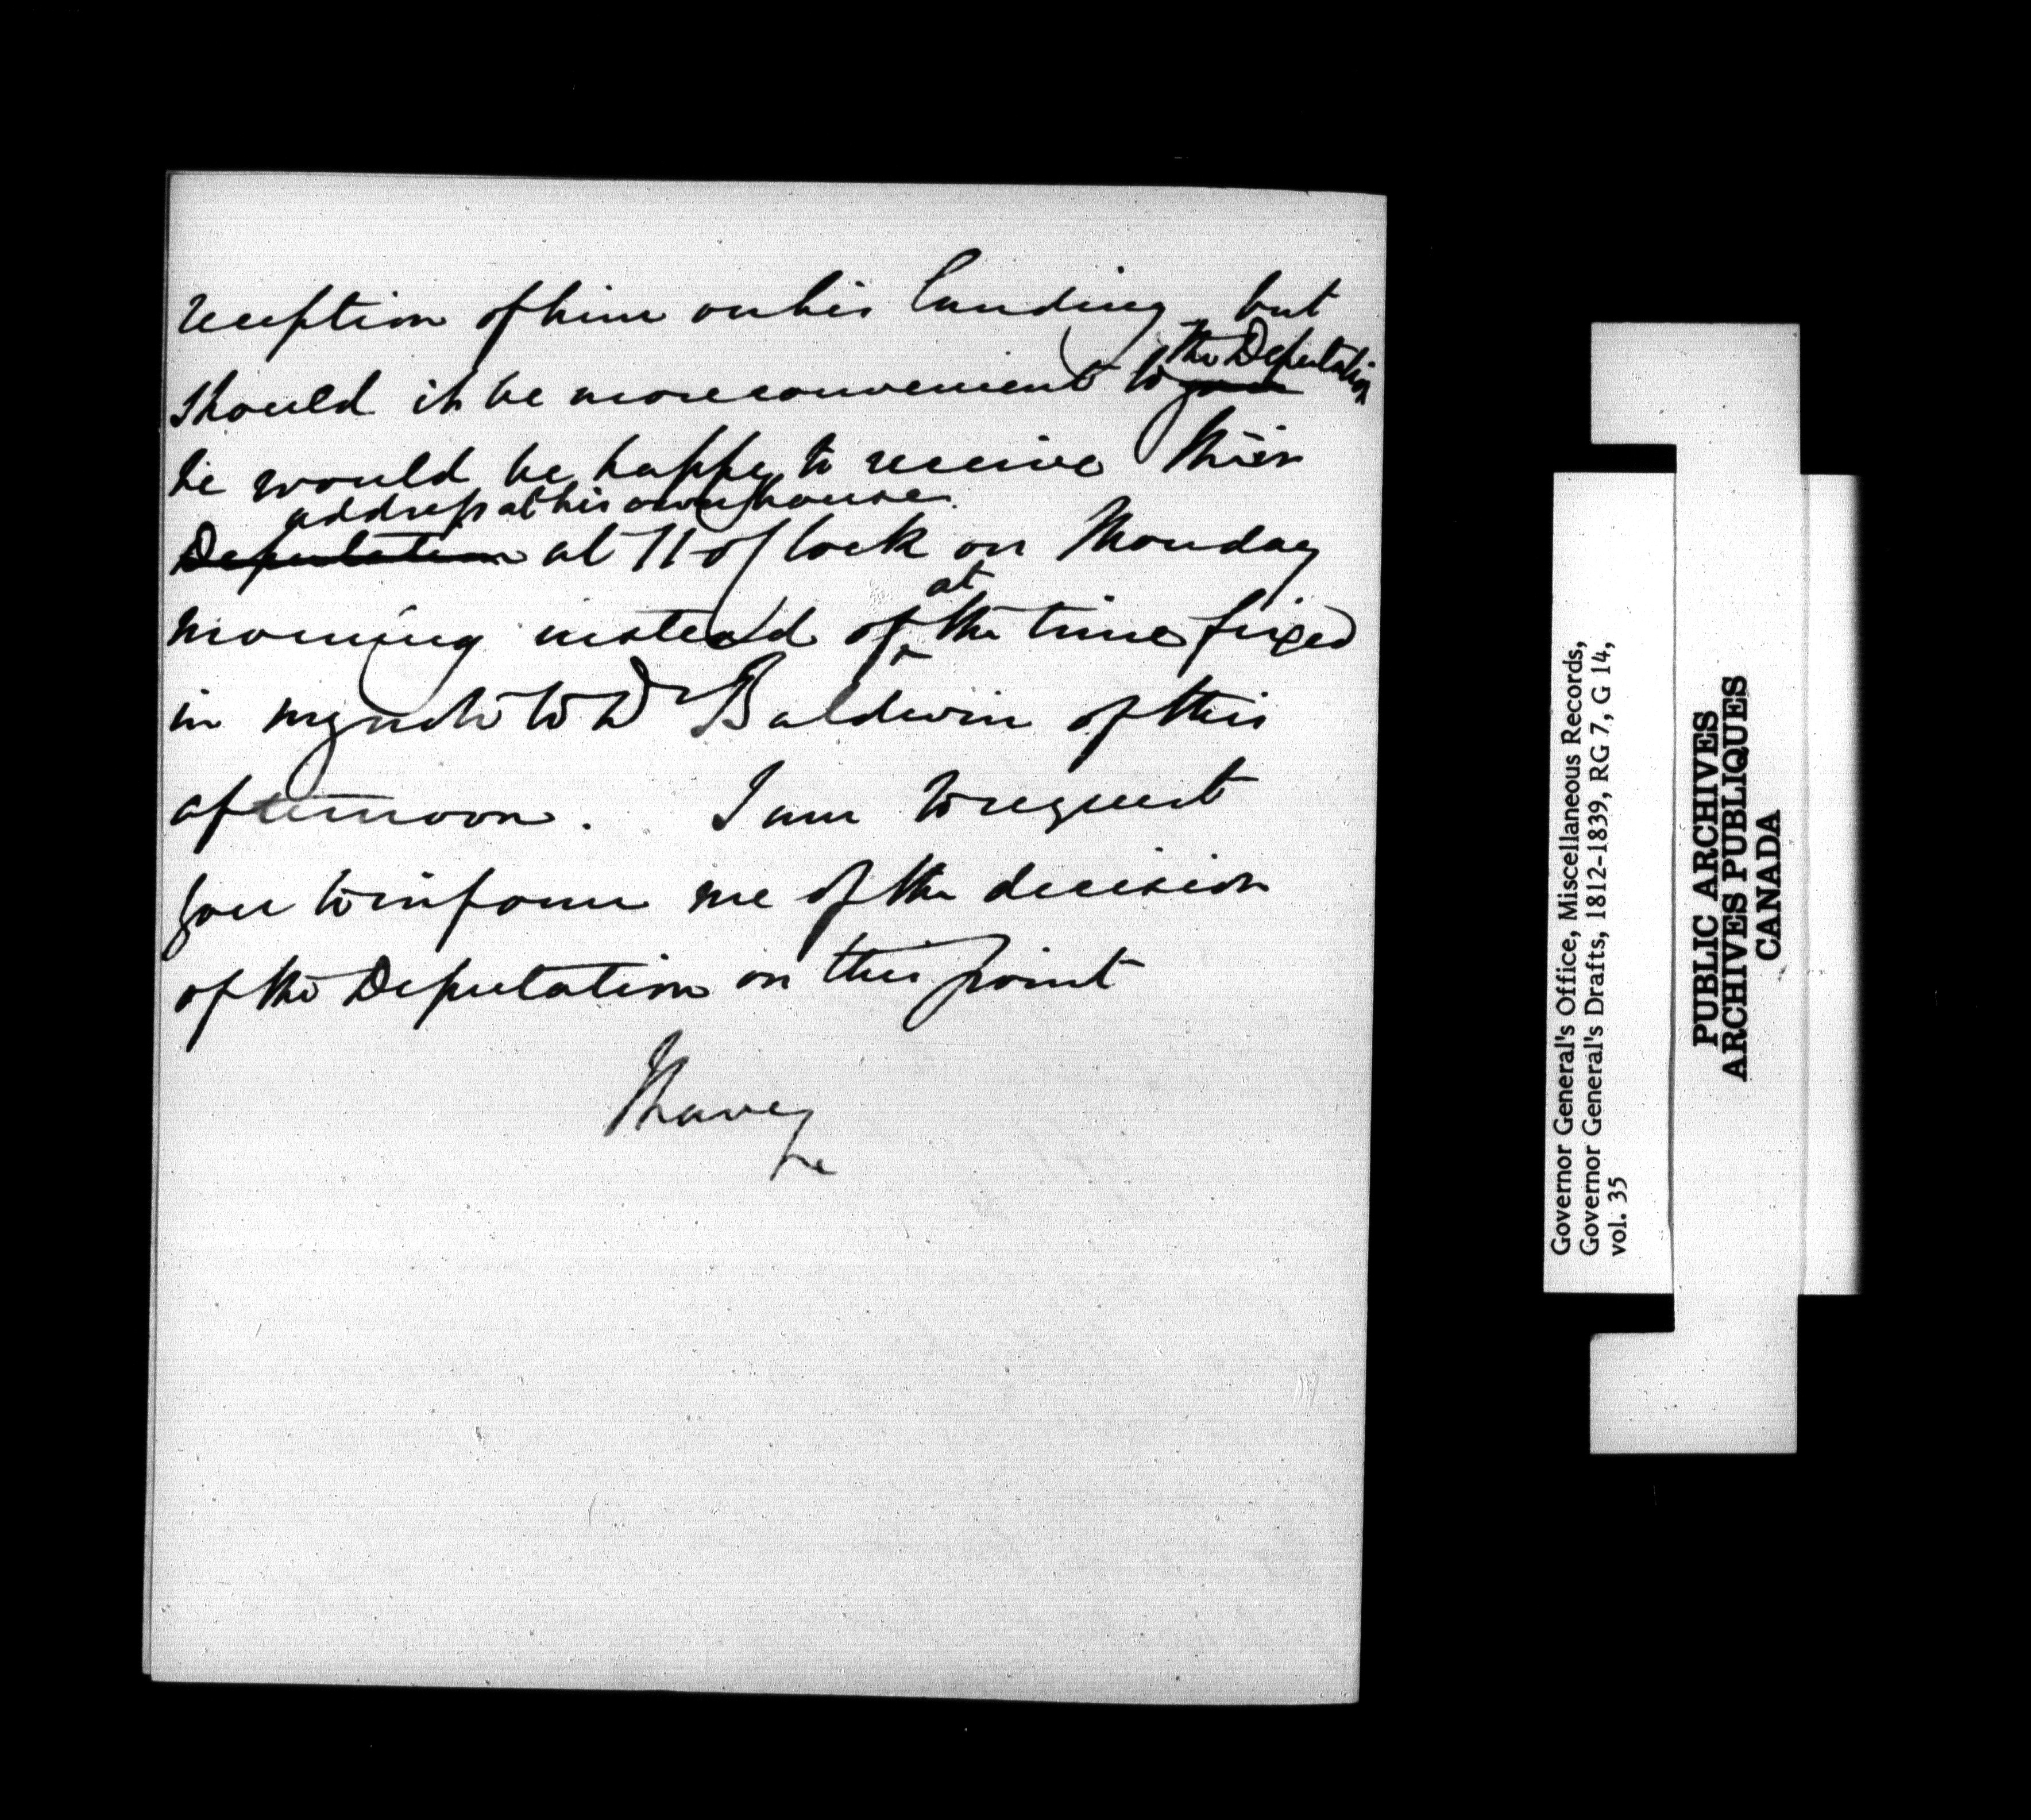 reception of him on his landing but
should it be more convenient to you the Deputation
he would be happy to receive their
address at his own house
Deputation at 11 o'clock on Monday
morning instead of at the time fixed
in my note to Dr Baldwin of this
afternoon. I am to request
you to inform me of the decision
of the Deputation on this point
I have
Governor General's Office, Miscellaneous Records,
Governor General's Drafts, 1812-1839, RG 7, G 14,
vol. 35
PUBLIC ARCHIVES
ARCHIVES PUBLIQUES
CANADA